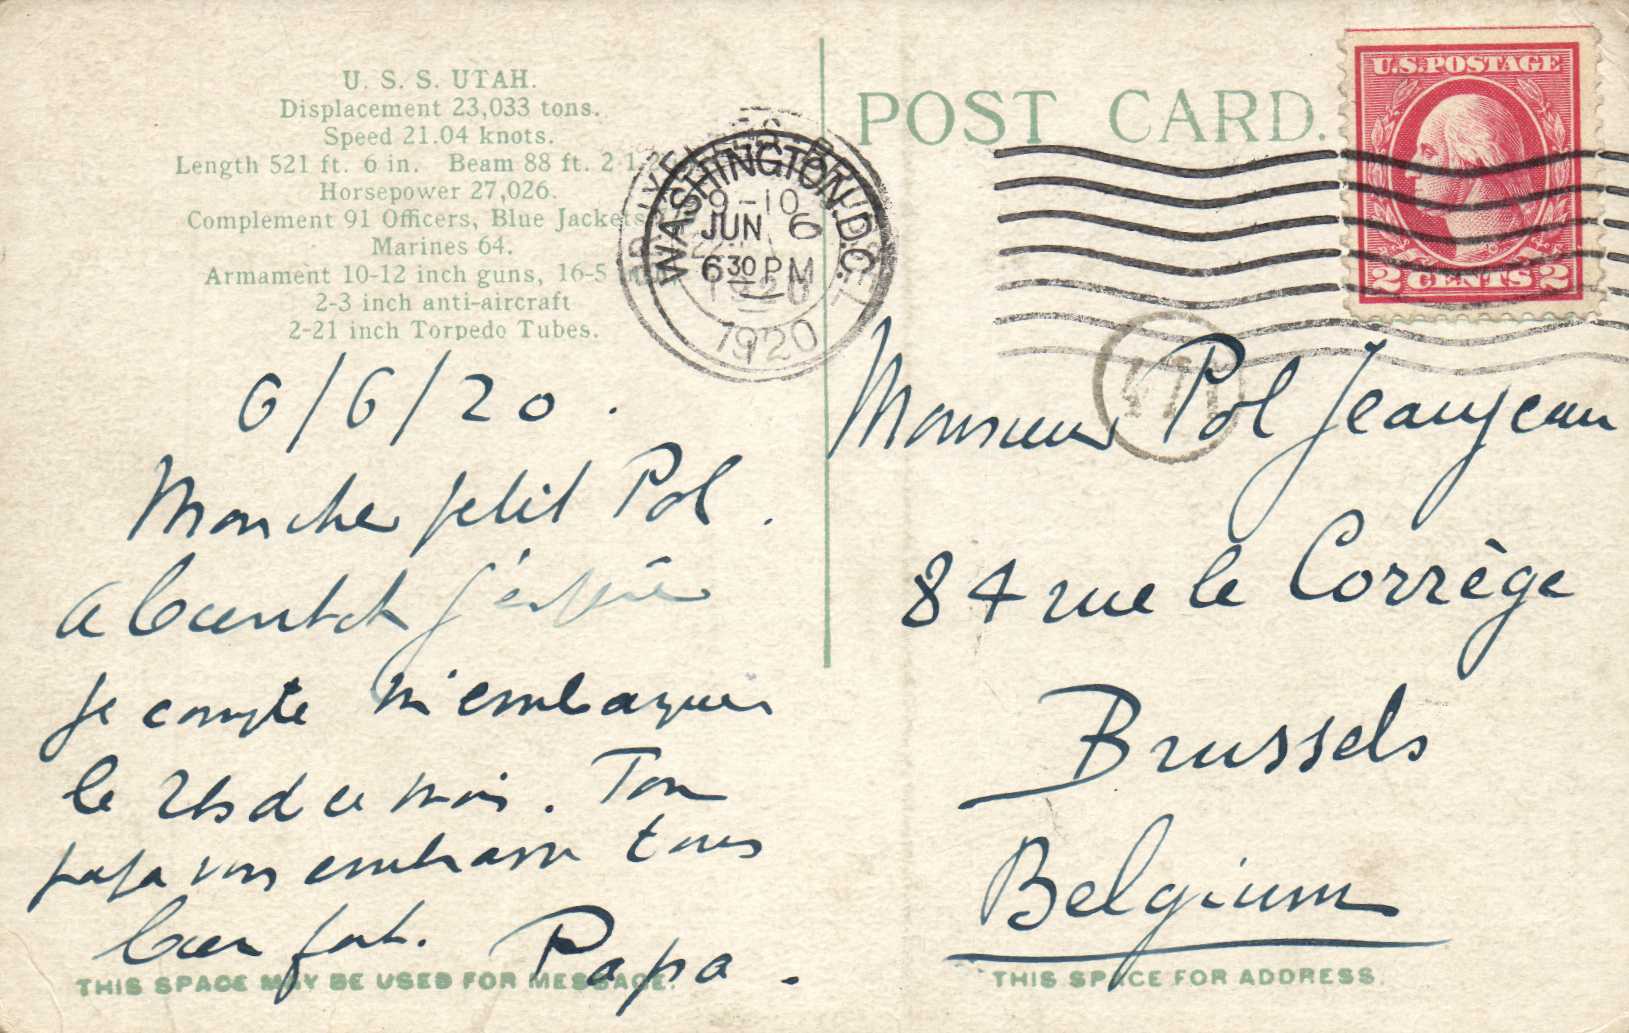 U. S. S. UTAH.
Displacement 23,033 tons.
Speed 21.04 knots.
Length 521 ft. 6 in. Beam 88 ft. 2 1
Horsepower 27,026.
Complement 91 Officers, Blue Jackets
Marines 64.
Armament 10-12 inch guns, 16-5
2-3 inch anti-aircraft
2-21 inch Torpedo Tubes.
POST CARD.
U.S. POSTAGE
2 CENTS 2
WASHINGTON, D.C.
9-10
JUN 6
6 30 PM
1920
1920
6/6/20.
Mon cher petit Pol.
A bientot j'espère
Je compte m'embarquer
le de ce mois. Ton
papa vous embrasse tous
bien fort. Papa.
Monsieur Pol Jeanjean
84 rue le Corrège
Brussels
Belgium
THIS SPACE MAY BE USED FOR MESSAGE.
THIS SPACE FOR ADDRESS.